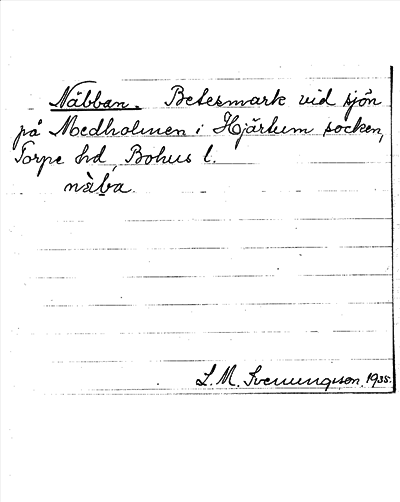 Näbban. Betesmark vid sjön
på Medholmen i Hjärtum socken,
Torpe hd, Bohus l.
nàba.
L. M. Svenungsson. 1935.